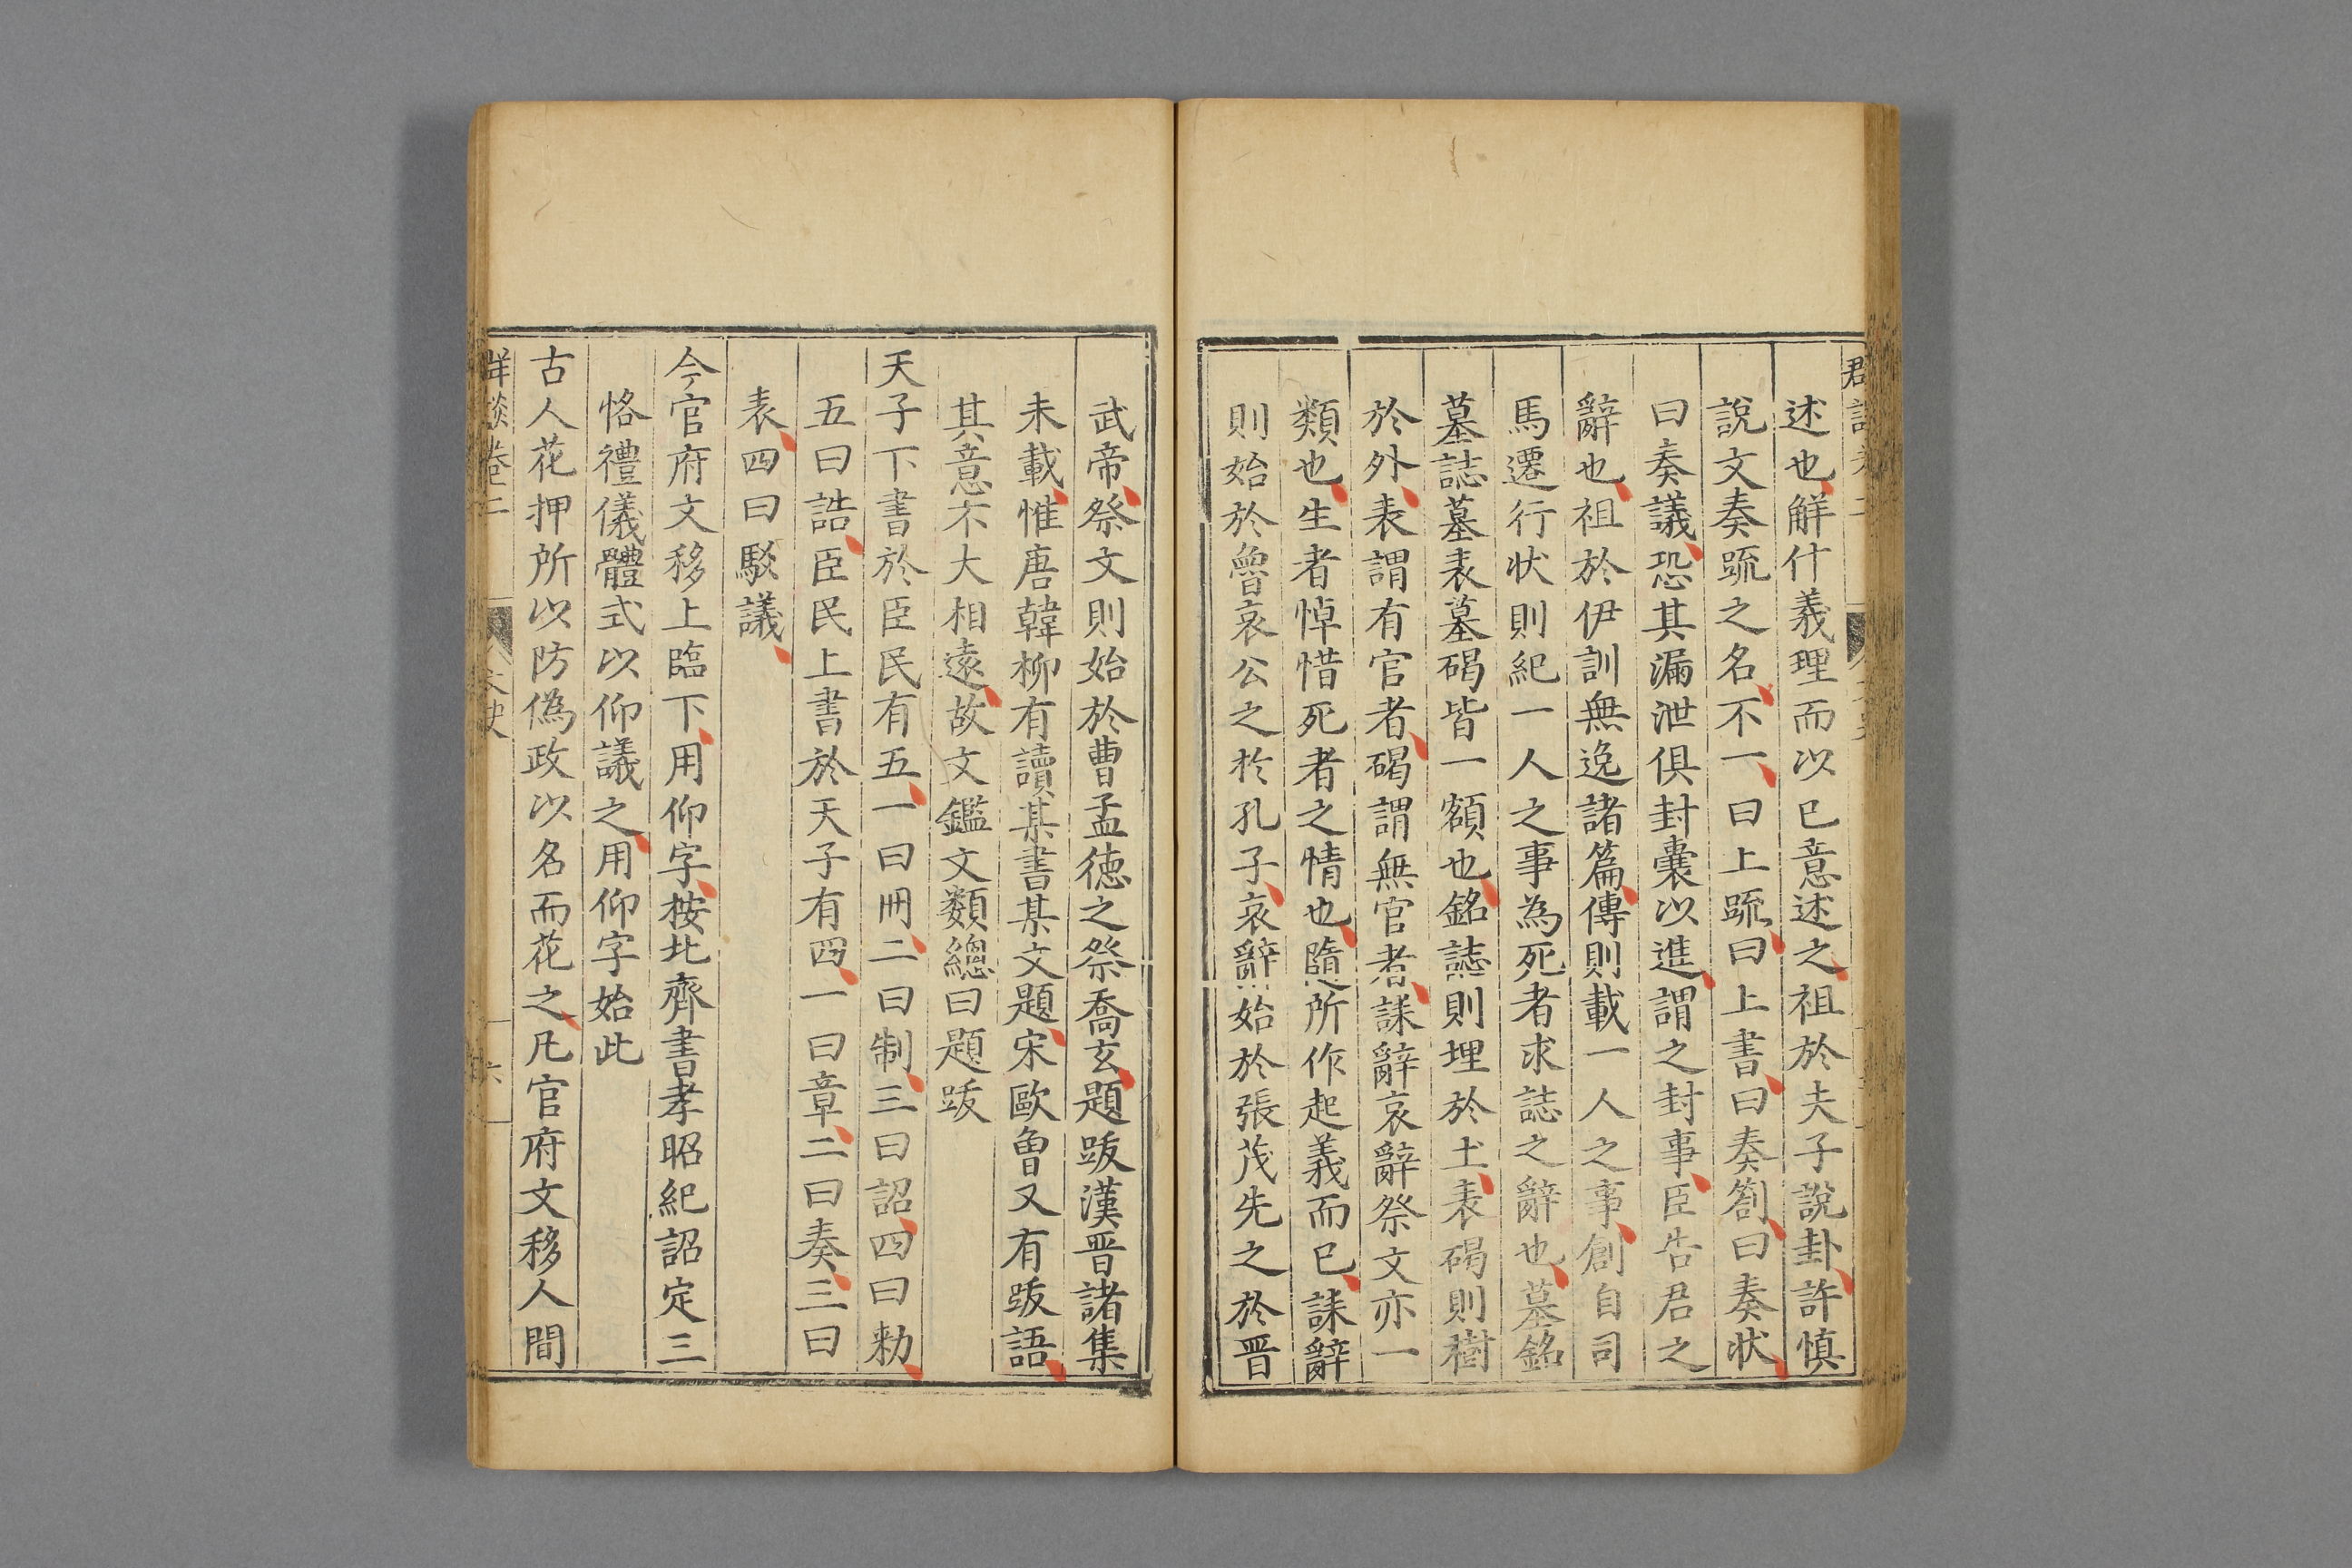 述也解什義理而以已意述之祖於夫子說卦許慎
說文奏䟽之名不一曰上䟽曰上書曰奏劄曰奏状
曰奏議恐其漏泄俱封囊以進謂之封事臣告君之
辭也祖於伊訓無逸諸篇傳則載一人之事創自司
馬遷行状則紀一人之事為死者求誌之辭也墓銘
墓誌墓表墓碣皆一額也銘誌則埋於土表碣則樹
於外表謂有官者碣謂無官者誄辭哀辭祭文亦一
類也生者悼惜死者之情也隨所作起義而已誄辭
則始於魯哀公之於孔子哀辭始於張茂先之於晋
武帝祭文則始於曹孟德之祭喬玄題跋漢晋諸集
未載惟唐韓柳有讀某書某文題宋歐曾又有跋語
其意不大相遠故文鑑文類總曰題跋
天子下書於臣民有五一曰冊二曰制三曰詔四曰勑
五曰誥臣民上書於天子有四一曰章二曰奏三曰
表四曰駁議
今官府文移上臨下用仰字按北齊書孝昭紀詔定三
恪禮儀體式以仰議之用仰字始此
古人花押所以防偽政以名而花之凡官府文移人間
卷二
六